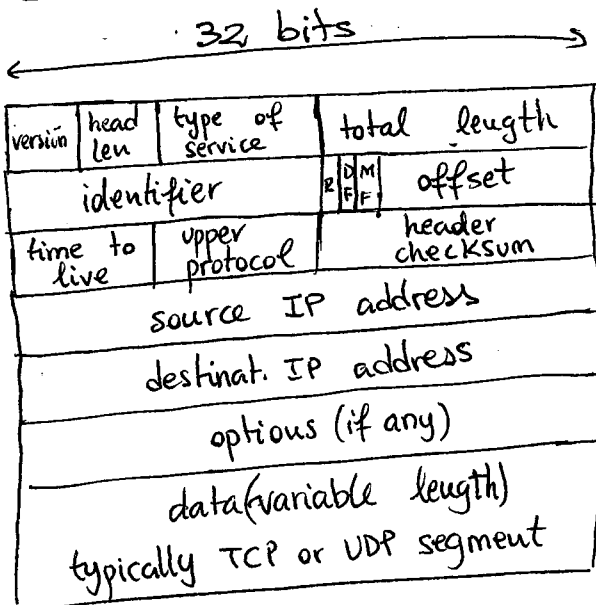 32 bits
version head len type of service total length
identifier R DF MF offset
time to live upper protocol header checksum
source IP address
destinat. IP address
options (if any)
data(variable length)
typically TCP or UDP segment